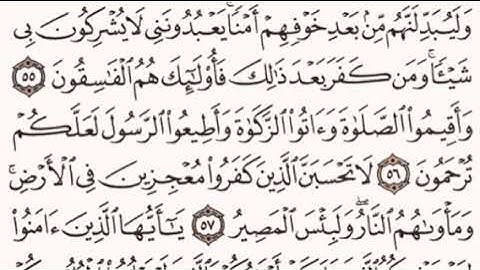 وَلَيُبَدِّلَنَّهُم مِّنۢ بَعْدِ خَوْفِهِمْ أَمْنًاۚ يَعْبُدُونَنِى لَا يُشْرِكُونَ بِى
شَيْـًٔاۚ وَمَن كَفَرَ بَعْدَ ذَٰلِكَ فَأُو۟لَٰٓئِكَ هُمُ ٱلْفَٰسِقُونَ ٥٥
وَأَقِيمُوا۟ ٱلصَّلَوٰةَ وَءَاتُوا۟ ٱلزَّكَوٰةَ وَأَطِيعُوا۟ ٱلرَّسُولَ لَعَلَّكُمْ
تُرْحَمُونَ ٥٦ لَا تَحْسَبَنَّ ٱلَّذِينَ كَفَرُوا۟ مُعْجِزِينَ فِى ٱلْأَرْضِۚ
وَمَأْوَىٰهُمُ ٱلنَّارُۖ وَلَبِئْسَ ٱلْمَصِيرُ ٥٧ يَٰٓأَيُّهَا ٱلَّذِينَ ءَامَنُوا۟